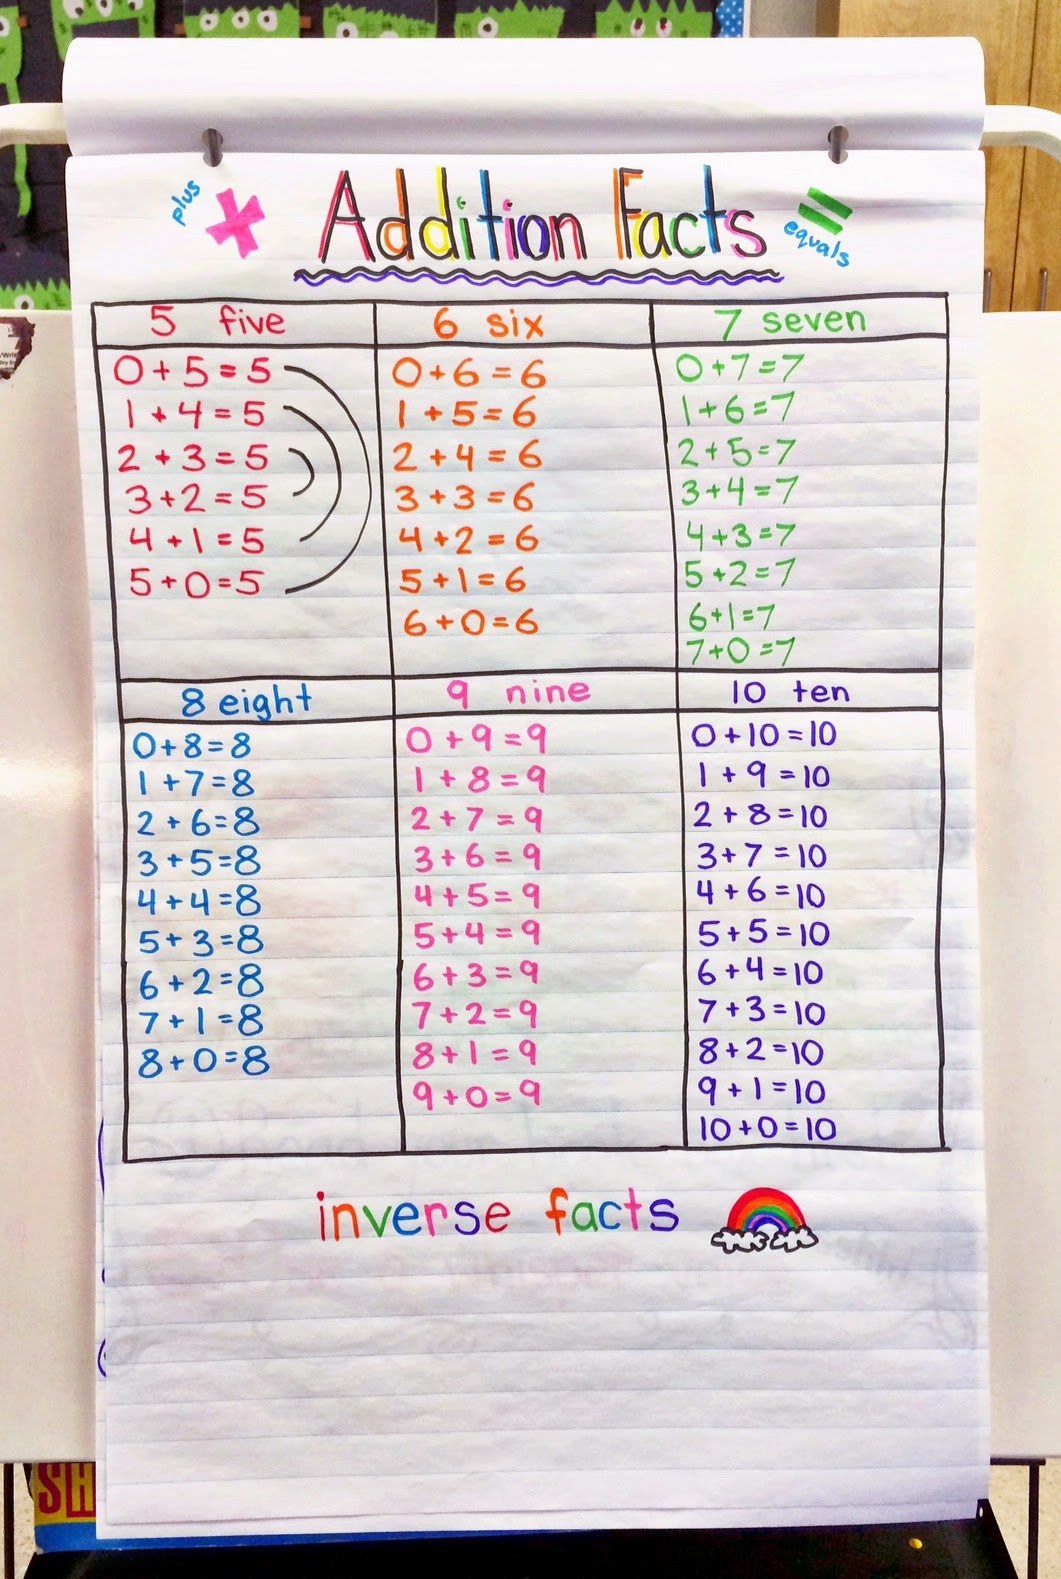 plus + Addition Facts = equals
5 five
0 + 5 = 5
1 + 4 = 5
2 + 3 = 5
3 + 2 = 5
4 + 1 = 5
5 + 0 = 5
6 six
0 + 6 = 6
1 + 5 = 6
2 + 4 = 6
3 + 3 = 6
4 + 2 = 6
5 + 1 = 6
6 + 0 = 6
7 seven
0 + 7 = 7
1 + 6 = 7
2 + 5 = 7
3 + 4 = 7
4 + 3 = 7
5 + 2 = 7
6 + 1 = 7
7 + 0 = 7
8 eight
0 + 8 = 8
1 + 7 = 8
2 + 6 = 8
3 + 5 = 8
4 + 4 = 8
5 + 3 = 8
6 + 2 = 8
7 + 1 = 8
8 + 0 = 8
9 nine
0 + 9 = 9
1 + 8 = 9
2 + 7 = 9
3 + 6 = 9
4 + 5 = 9
5 + 4 = 9
6 + 3 = 9
7 + 2 = 9
8 + 1 = 9
9 + 0 = 9
10 ten
0 + 10 = 10
1 + 9 = 10
2 + 8 = 10
3 + 7 = 10
4 + 6 = 10
5 + 5 = 10
6 + 4 = 10
7 + 3 = 10
8 + 2 = 10
9 + 1 = 10
10 + 0 = 10
inverse facts
SH